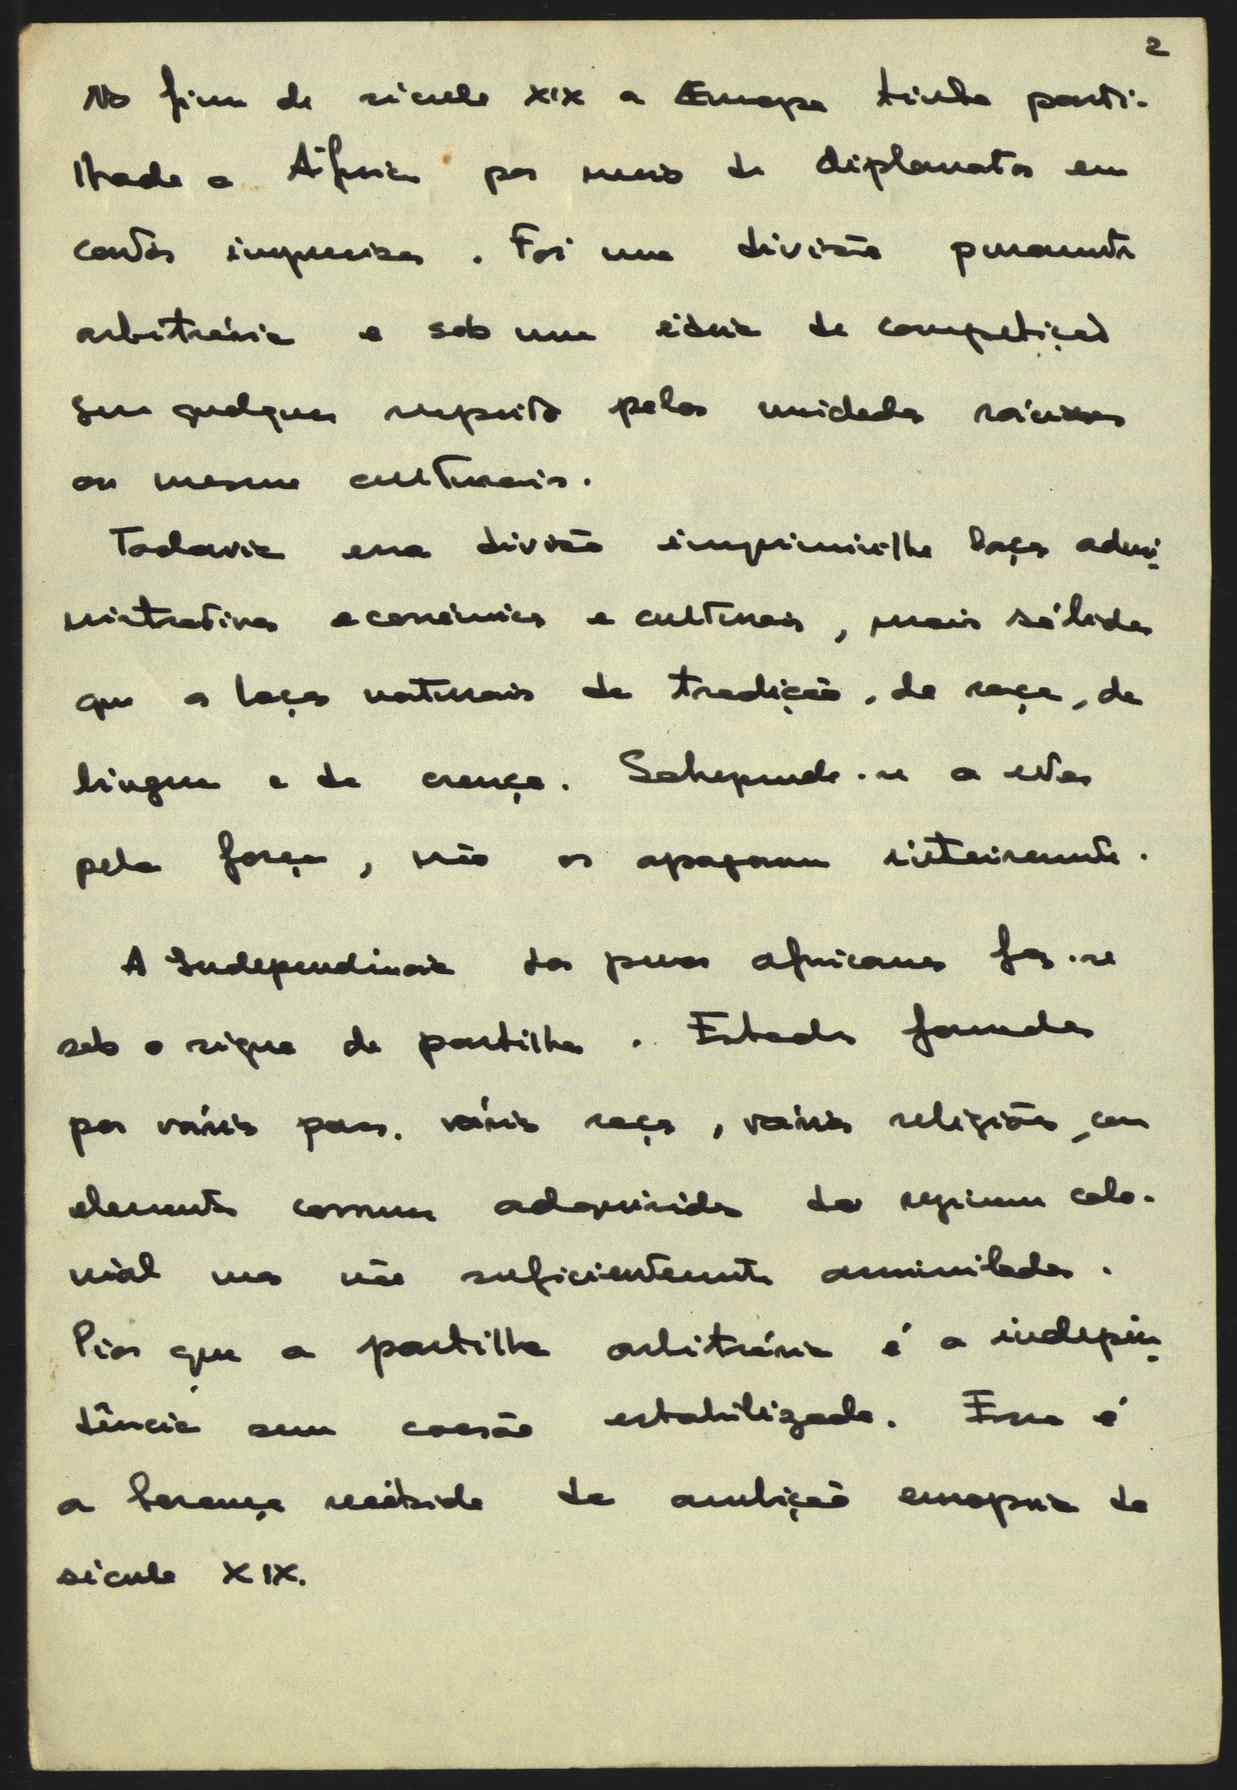 2
No fim do século XIX a Europa tinha parti-
lhado a África por meio de diplomatas em
cartas imprecisas. Foi uma divisão puramente
arbitrária e sob uma ideia de competição
sem qualquer respeito pelas unidades rácicas
ou mesmo culturais.
Todavia essa divisão imprimiu-lhe laços admi-
nistrativos económicos e culturais, mais sólidos
que os laços naturais de tradição, de raça, de
língua e de crença. Sobrepondo-se a estes
pela força, não os apagaram inteiramente.
A Independência dos povos africanos fez-se
sob o signo da partilha. Estados formados
por vários povos, várias raças, várias religiões, com
elementos comuns adquiridos do regimem colo-
nial mas não suficientemente assimilados.
Pior que a partilha arbitrária é a indepen-
dência sem coesão estabilizada. Essa é
a herança recebida da ambição europeia do
século XIX.